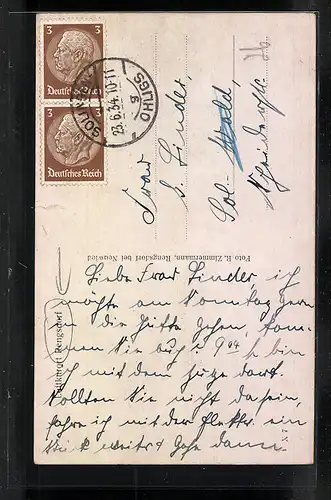 3
3
Deutsches Reich
3
3
Deutsches Reich
SOLINGEN
OHLIGS
23.6.34.10-11
Frau
Linder,
Sol- Wald,
Foto R. Zimmermann, Rengsdorf bei Neuwied
Luftkurort Rengsdorf
Liebe Frau Linder ich
möchte am Sonntag gern
in die Hütte gehen, kom-
men Sie auch? 9 h bin
ich mit dem Zuge dort.
Sollten Sie nicht da sein,
fahre ich mit der Elektr. ein
Stück weiter & gehe dann